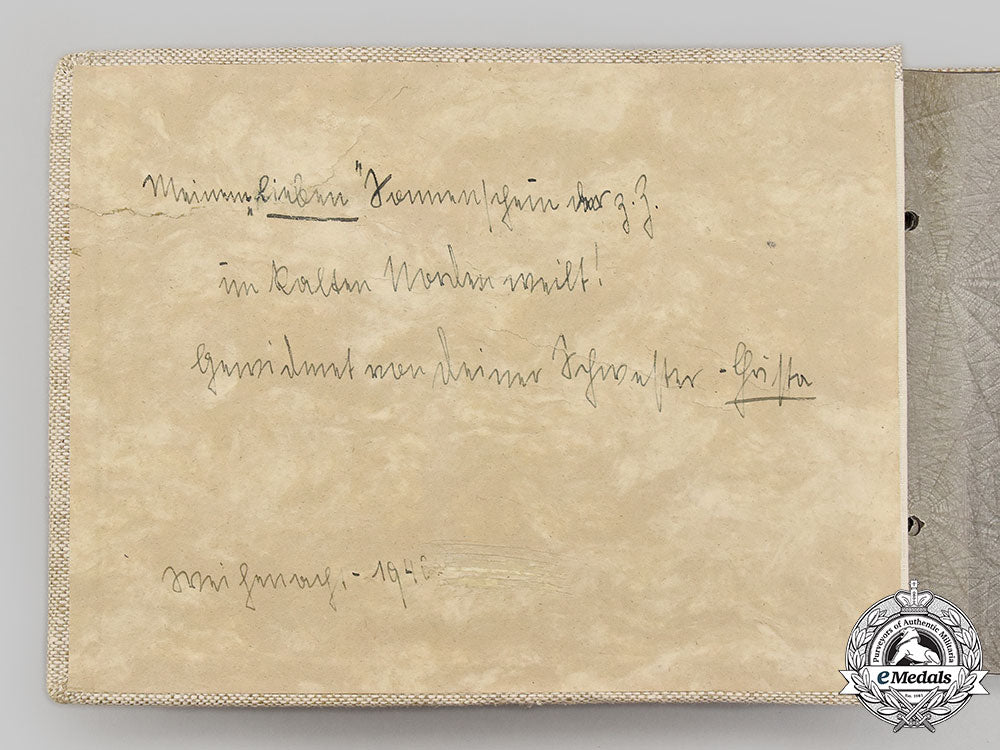 Meinem „lieben" Sonnenschein der z. Z.
im kalten Norden weilt!
Gewidmet von deiner Schwester - Gusta
Weihenach. - 1940.
Purveyors of Authentic Militaria
eMedals
Est. 1985